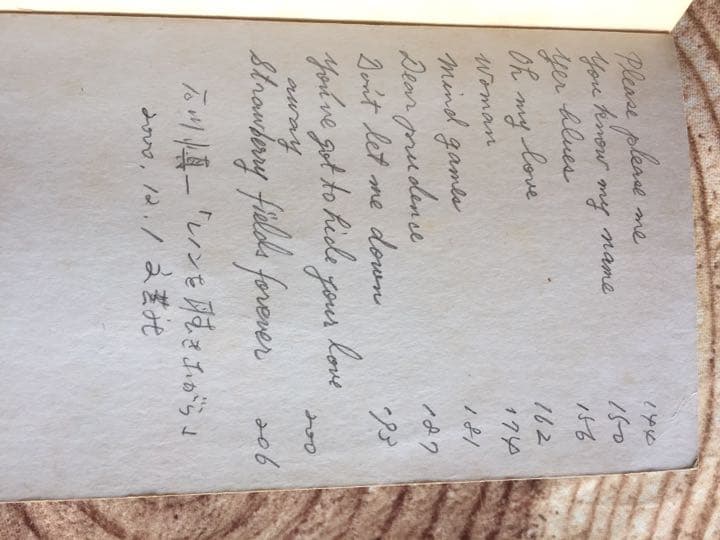 Please please me 144
You know my name 150
Yer blues 156
Oh my love 162
Woman 174
Mind games 181
Dear prudence 187
Don't let me down 195
You've got to hide your love
away 200
Strawberry fields forever 206
石川慎一「を聴きながら」
2000.12.1 文芸社